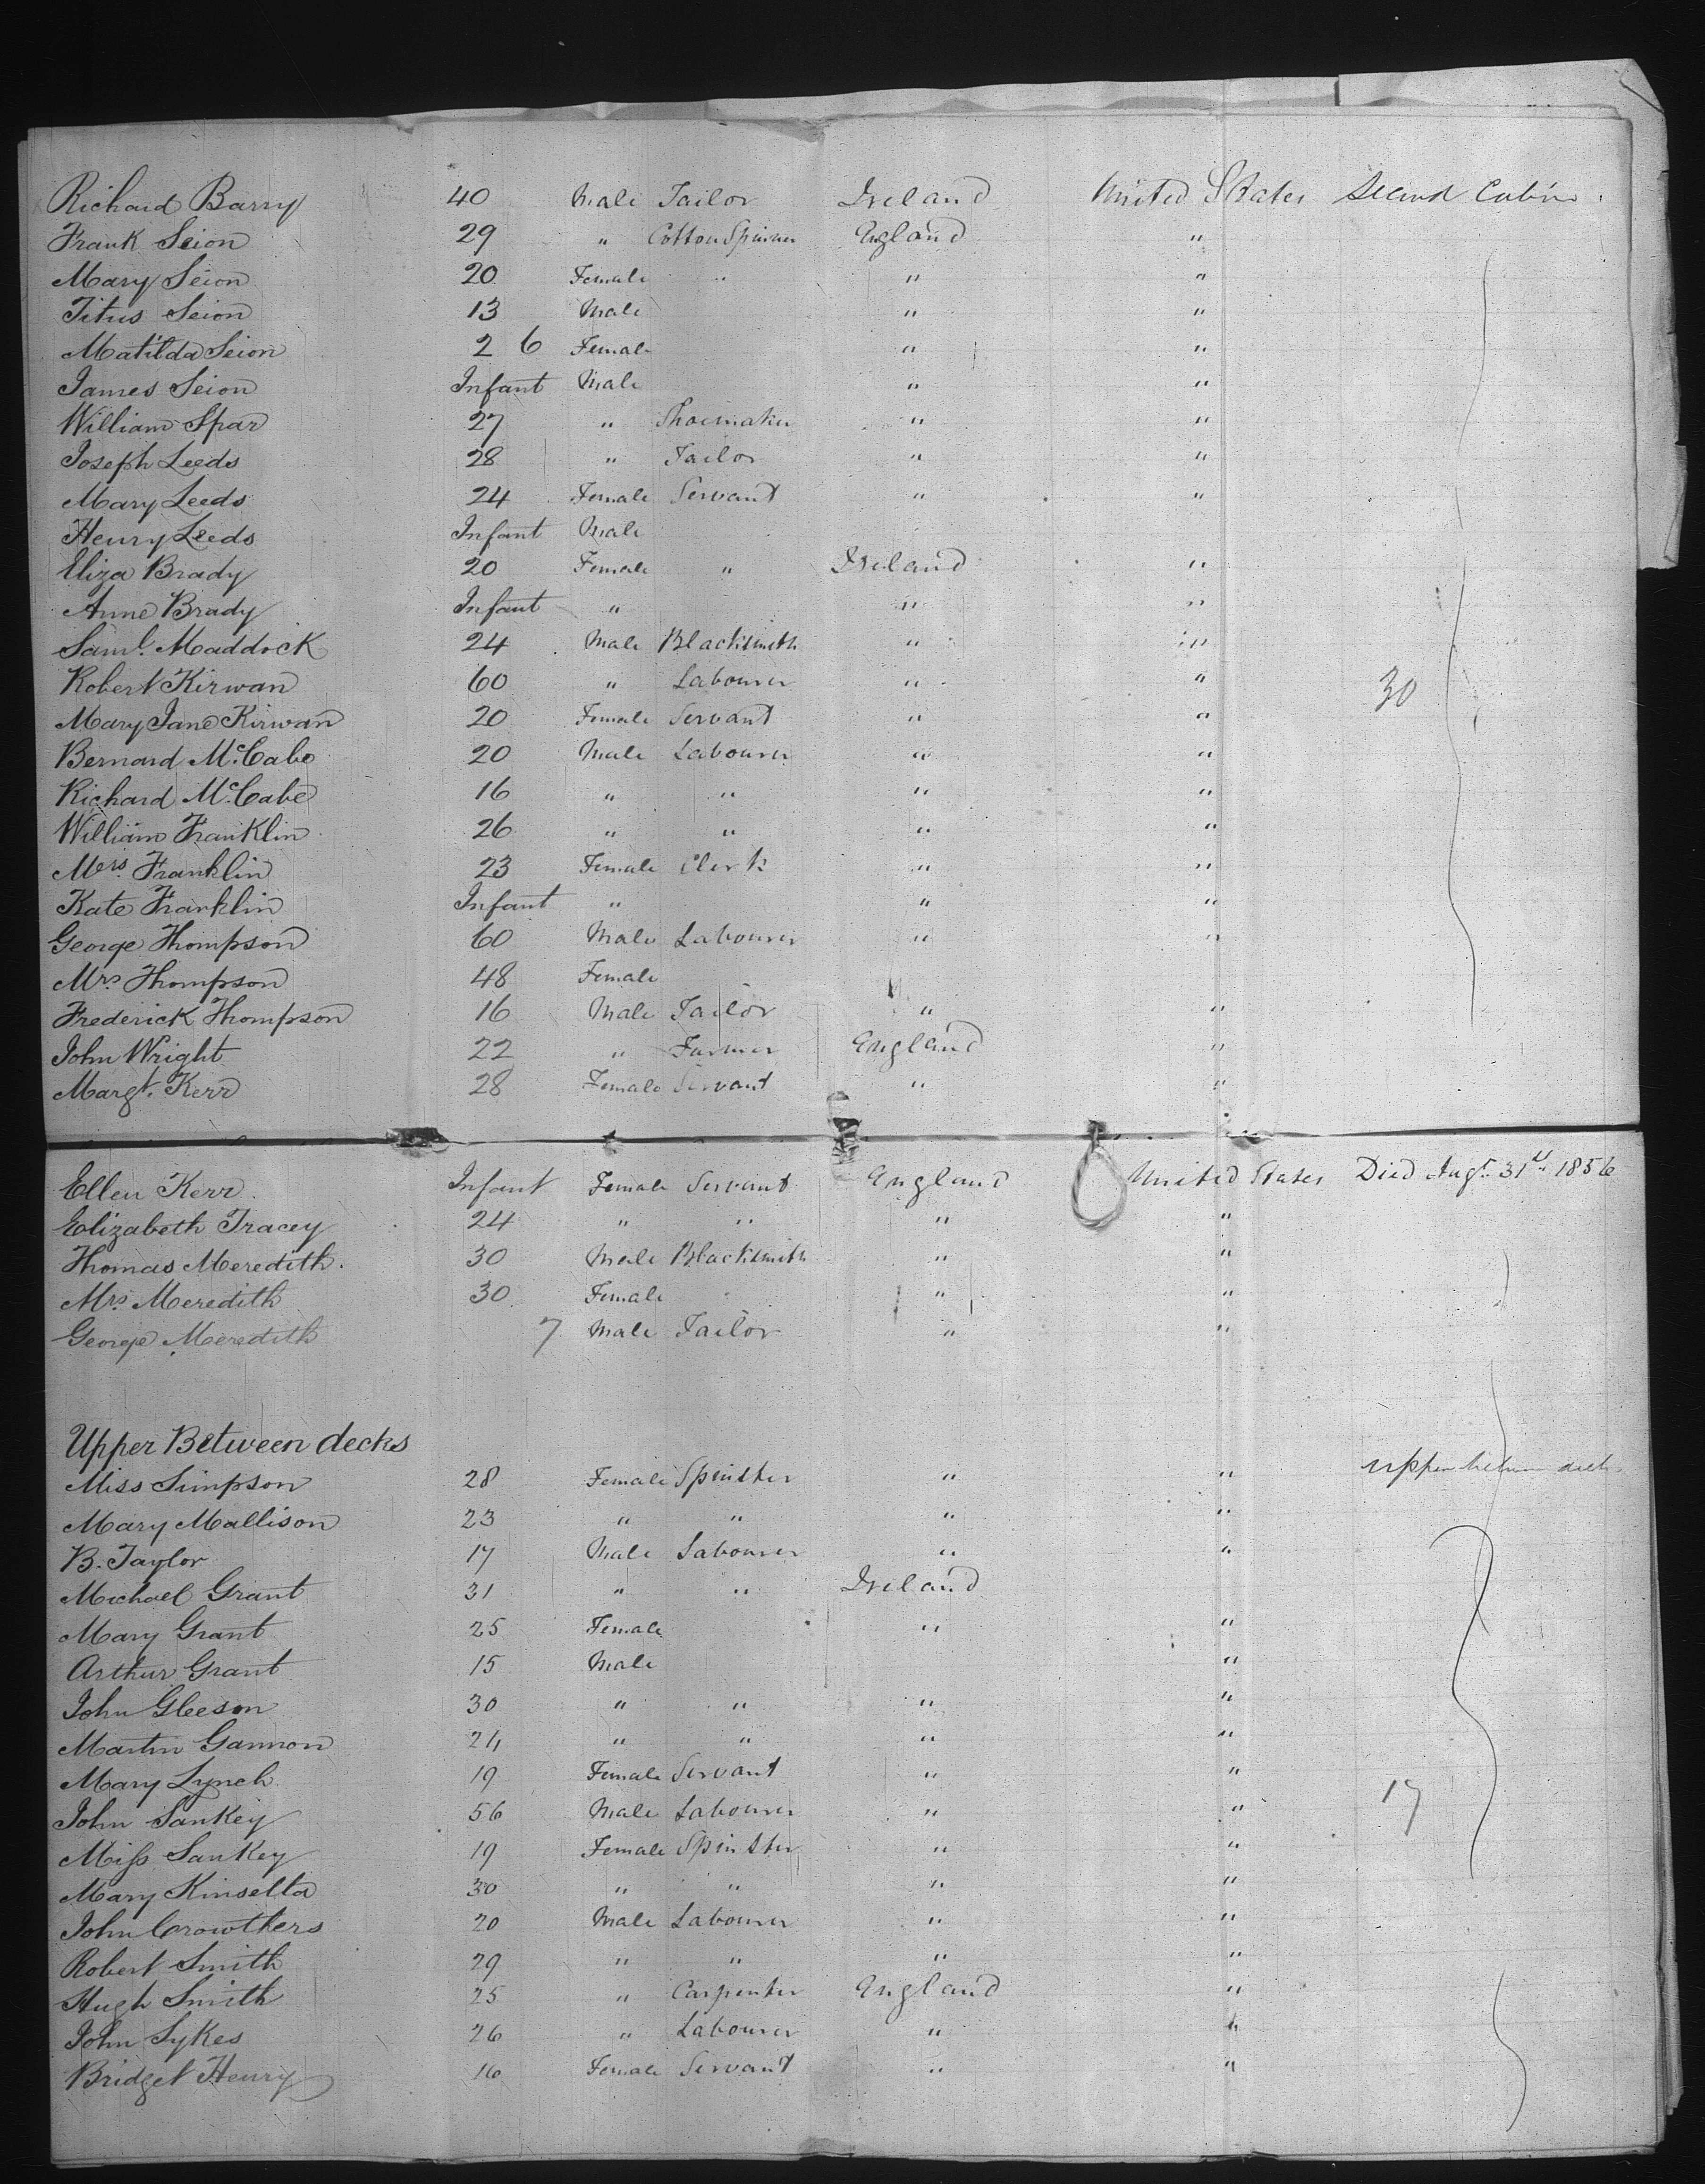 Richard Barry 40 Male Tailor Ireland United States Second Cabin
Frank Seion 29 " Cotton Spinner England "
Mary Seion 20 Female " " "
Titus Seion 13 Male " "
Matilda Seion 2 6 Female " "
James Seion Infant Male " "
William Spar 27 " Shoemaker " "
Joseph Leeds 28 " Tailor " "
Mary Leeds 24 Female Servant " "
Henry Leeds Infant Male
Eliza Brady 20 Female " Ireland "
Anne Brady Infant " " "
Saml. Maddock 24 Male Blacksmith " "
Robert Kirwan 60 " Labourer " " 30
Mary Jane Kirwan 20 Female Servant " "
Bernard McCabe 20 Male Labourer " "
Richard McCabe 16 " " " "
William Franklin 26 " " " "
Mrs. Franklin 23 Female Clerk " "
Kate Franklin Infant " " "
George Thompson 60 Male Labourer " "
Mrs. Thompson 48 Female
Frederick Thompson 16 Male Tailor " "
John Wright 22 " Farmer England "
Margt. Kerr 28 Female Servant " "
Ellen Kerr Infant Female Servant England United States Died Augt. 31st 1856
Elizabeth Tracey 24 " " " "
Thomas Meredith. 30 Male Blacksmith " "
Mrs. Meredith 30 Female " "
George Meredith 7 Male Tailor " "
Upper Between decks
Miss Simpson 28 Female Spinster " " upper between decks
Mary Mallison 23 " " " "
B. Taylor 17 Male Labourer " "
Michael Grant 31 " " Ireland
Mary Grant 25 Female " "
Arthur Grant 15 Male "
John Gleeson 30 " " " "
Martin Gannon 24 " " " "
Mary Lynch 19 Female Servant " "
John Sankey 56 Male Labourer " " 17
Miss Sankey 19 Female Spinster " "
Mary Kinsella 30 " " " "
John Crowthers 20 Male Labourer " "
Robert Smith 29 " " " "
Hugh Smith 25 " Carpenter England "
John Sykes 26 " Labourer " "
Bridget Henry 16 Female Servant " "